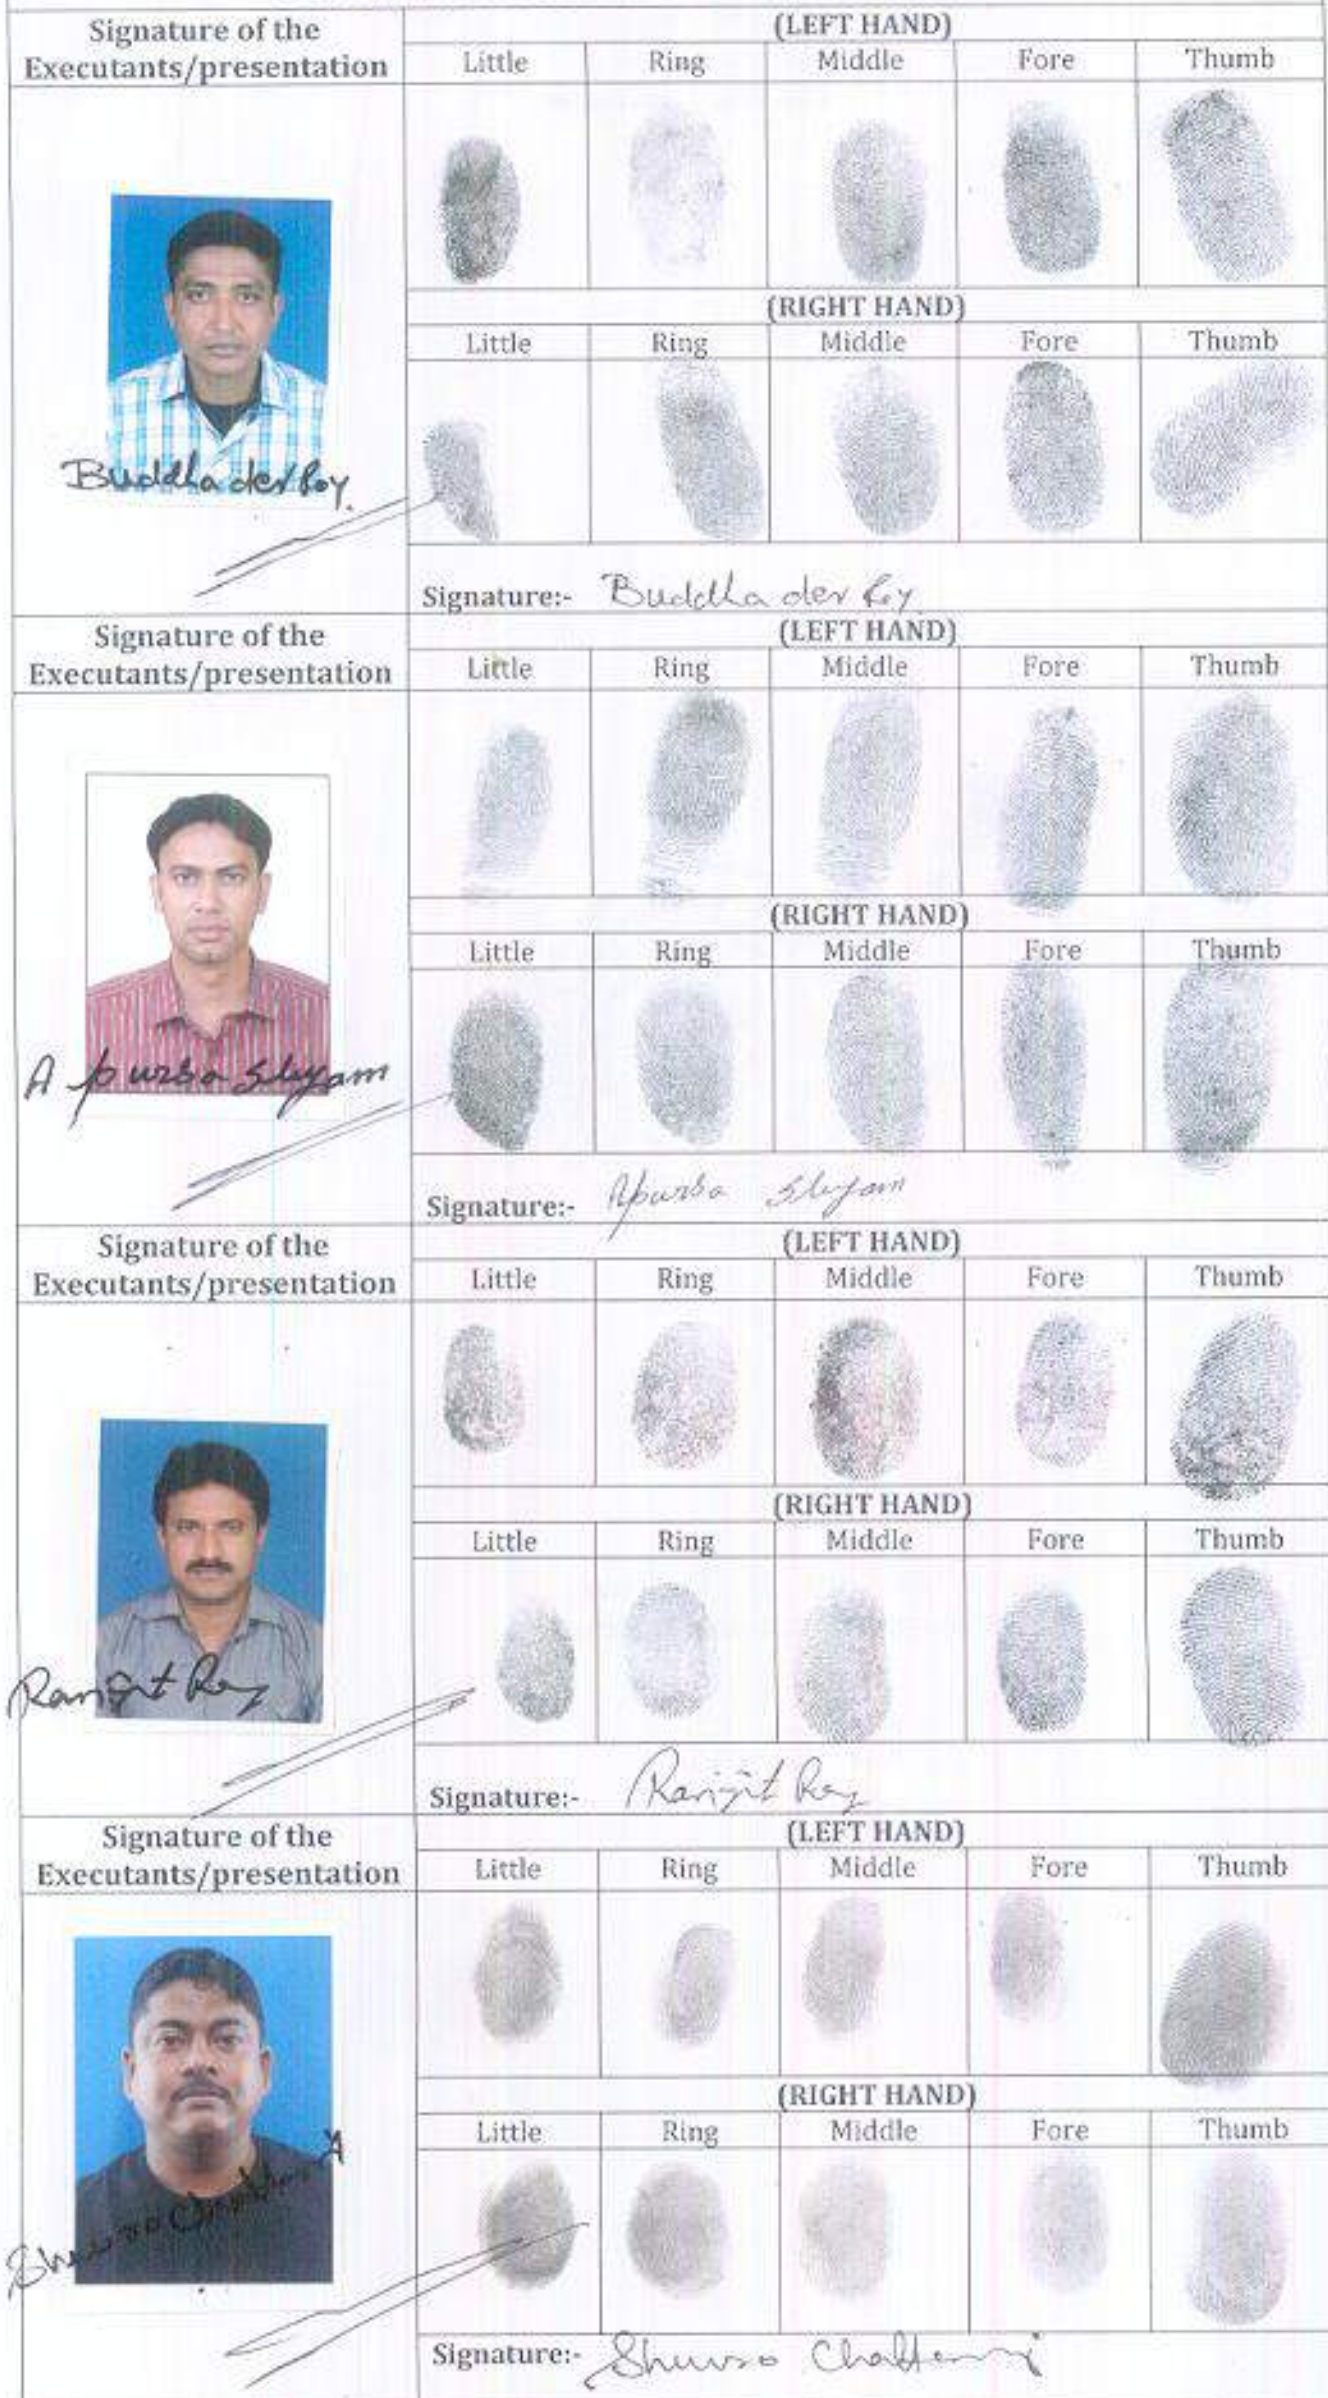 Signature of the
Executants/presentation
(LEFT HAND)
Little Ring Middle Fore Thumb
(RIGHT HAND)
Little Ring Middle Fore Thumb
Buddha dev Roy.
Signature:- Buddha dev Roy
Signature of the
Executants/presentation
(LEFT HAND)
Little Ring Middle Fore Thumb
(RIGHT HAND)
Little Ring Middle Fore Thumb
Apurba Shyam
Signature:- Apurba Shyam
Signature of the
Executants/presentation
(LEFT HAND)
Little Ring Middle Fore Thumb
(RIGHT HAND)
Little Ring Middle Fore Thumb
Ranjit Roy
Signature:- Ranjit Roy
Signature of the
Executants/presentation
(LEFT HAND)
Little Ring Middle Fore Thumb
(RIGHT HAND)
Little Ring Middle Fore Thumb
Signature:-